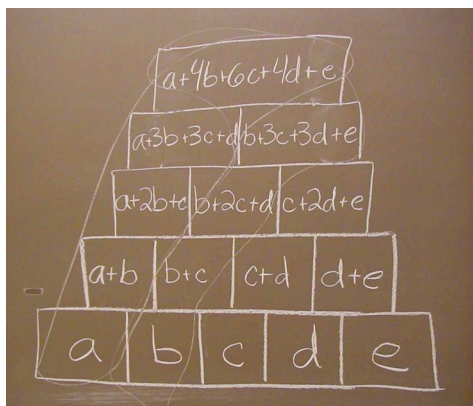 a+4b+6c+4d+e
a+3b+3c+d b+3c+3d+e
a+2b+c b+2c+d c+2d+e
a+b b+c c+d d+e
a b c d e